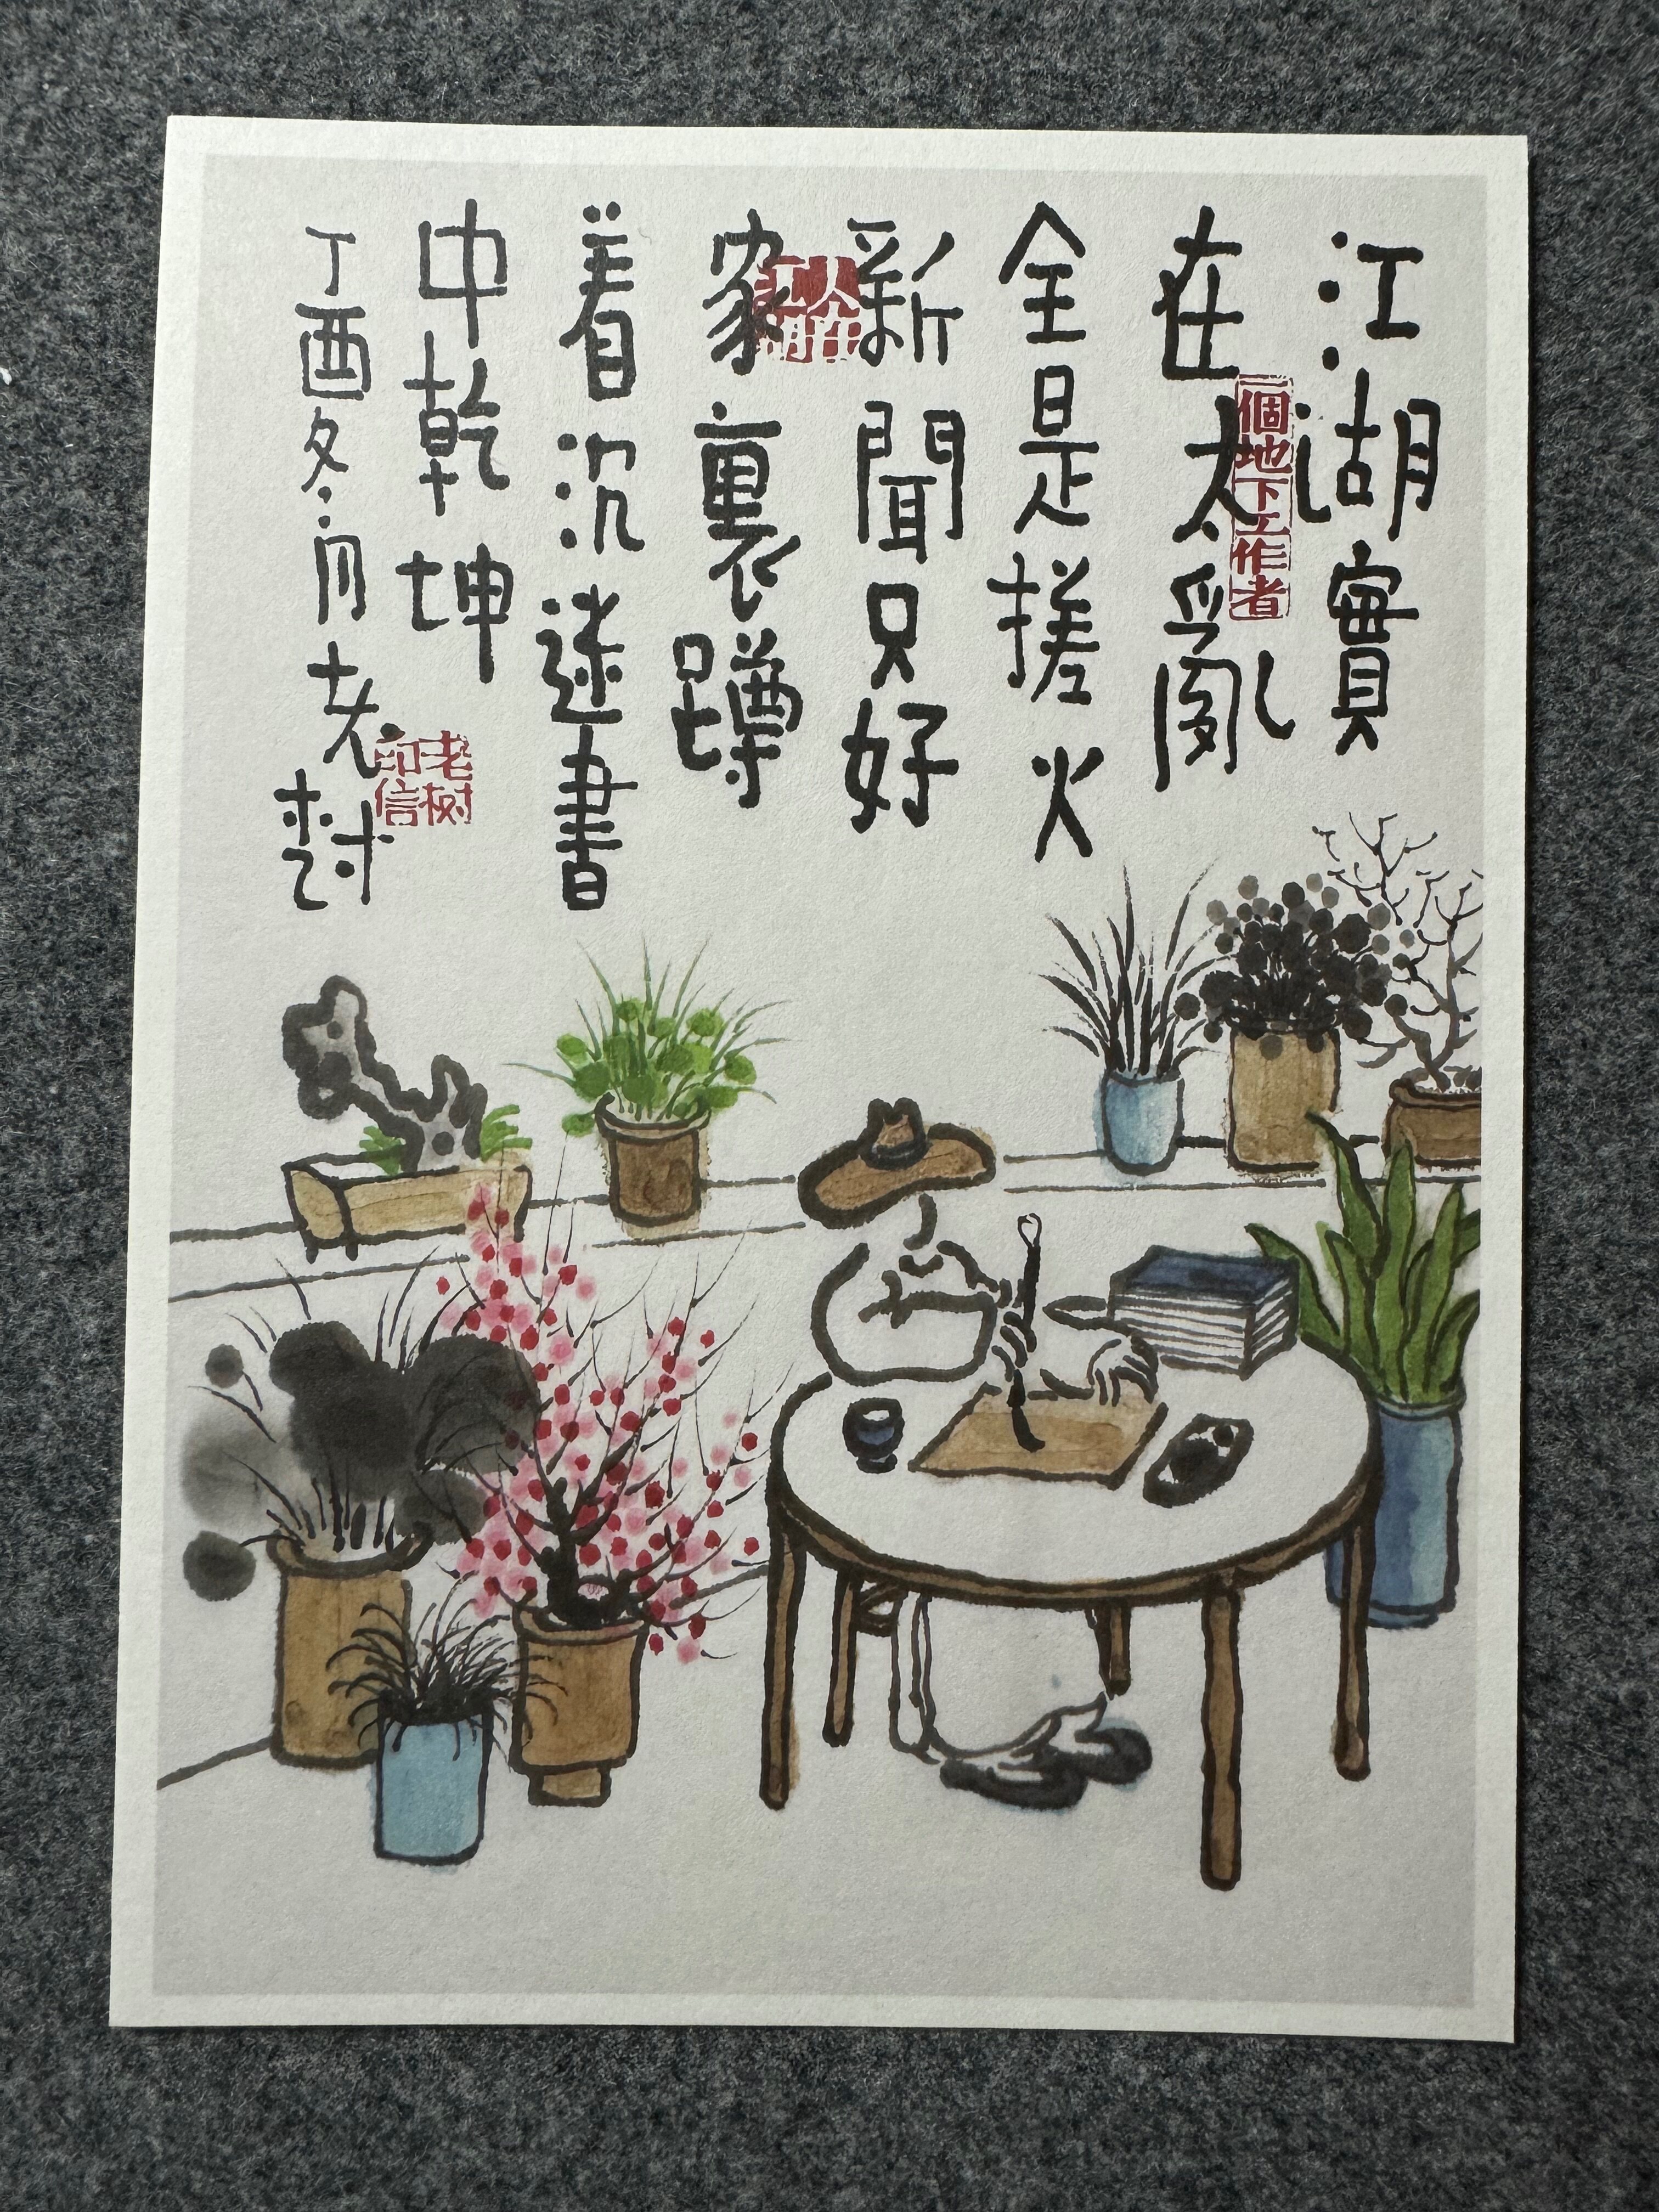 江湖實
在太亂
全是搓火
新聞只好
家裏蹲
着沉迷書
中乾坤
丁酉冬月老樹
一個地下工作者
老树印信